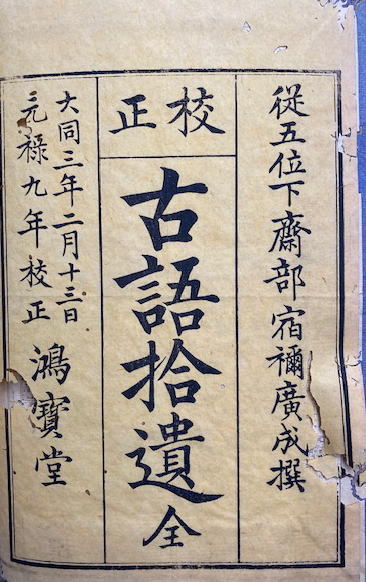 從五位下齋部宿禰廣成撰
校正
古語拾遺全
大同三年二月十三日
元祿九年校正
鴻寶堂